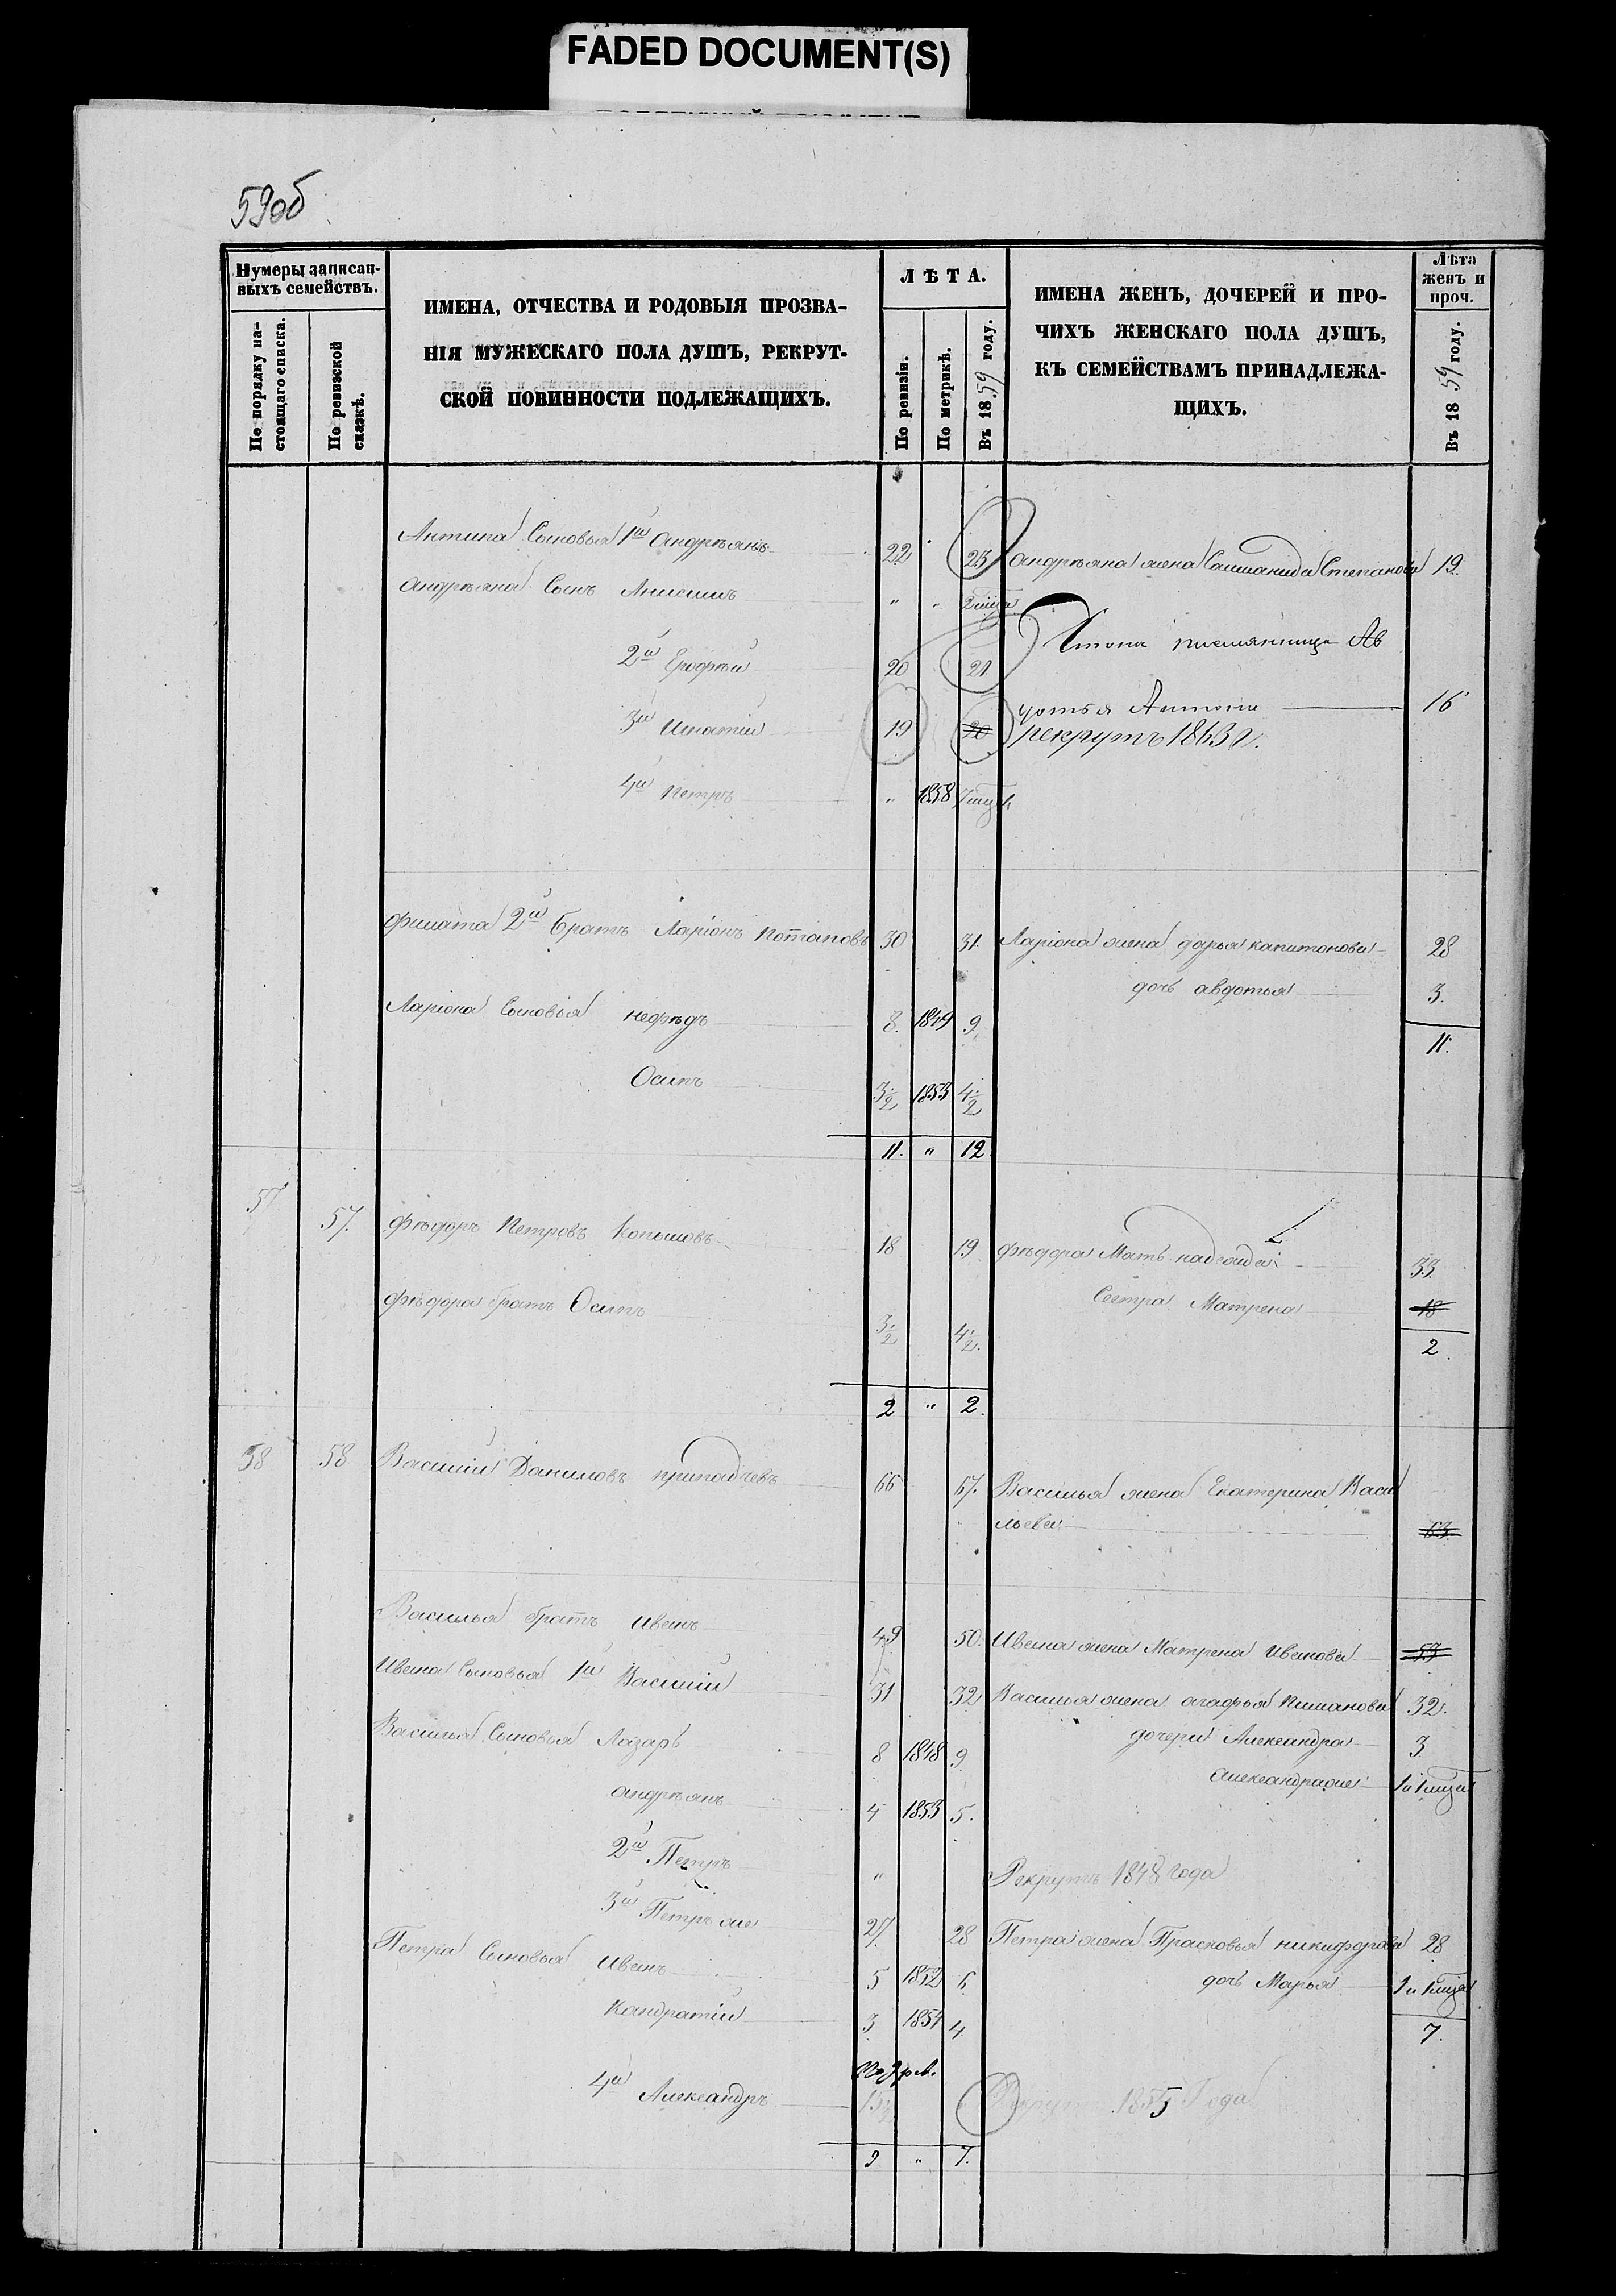 FADED DOCUMENT(S)
59об
Нумеры записан-
ныхъ семействъ.
По порядку на-
стоящаго списка.
По ревизской
сказкѣ.
ИМЕНА, ОТЧЕСТВА И РОДОВЫЯ ПРОЗВА-
НІЯ МУЖЕСКАГО ПОЛА ДУШЪ, РЕКРУТ-
СКОЙ ПОВИННОСТИ ПОДЛЕЖАЩИХЪ.
ЛѢТА.
По ревизіи.
По метрикѣ.
Въ 1859 году.
ИМЕНА ЖЕНЪ, ДОЧЕРЕЙ И ПРО-
ЧИХЪ ЖЕНСКАГО ПОЛА ДУШЪ,
КЪ СЕМЕЙСТВАМЪ ПРИНАДЛЕЖА-
ЩИХЪ.
Лѣта
женъ и
проч.
Въ 1859 году.
Антипа Сыновья 1й Андреянъ 22 23 андреяна жена Степанова 19.
андреяна Сынъ Анисимъ " "
племянница Ав
2й Ерофей 20 21
дотья 16
3й Игнатій 19 20 рекрутъ 1863 г.
4й петръ " 1858
филата 2й братъ Ларіонъ потаповъ 30 31. Ларіона жена дарья капитонова 28
дочь авдотья 3.
Ларіона Сыновья нефедъ 8. 1849 9.
11.
Осипъ 3½ 1853 4½
11. " 12.
57 57. фѣдоръ Петровъ 18 19 фѣдора Мать надежда 33
фѣдора братъ Осипъ 3½ 4½ Сестра Матрена 18
2.
2 " 2.
58 58 Василій Даниловъ 66 67. Василья жена Екатерина Васи
льева 63
Василья братъ иванъ 49 50. Ивана жена Матрена иванова 53
Ивана Сыновья 1й Василій 31 32 Василья жена агафья 32.
Василья Сыновья Лазарь 8 1848 9 дочери Александра 3
андреянъ 4 1853 5.
2й Петръ " Рекрутъ 1848 года
3й Петръ же 27. 28 Петра жена Прасковья никифорова 28
Петра Сыновья иванъ 5 1852 6 дочь Марья
кандратій 3 1854 4 7.
4й Александръ 1855 Года
9 " 7.